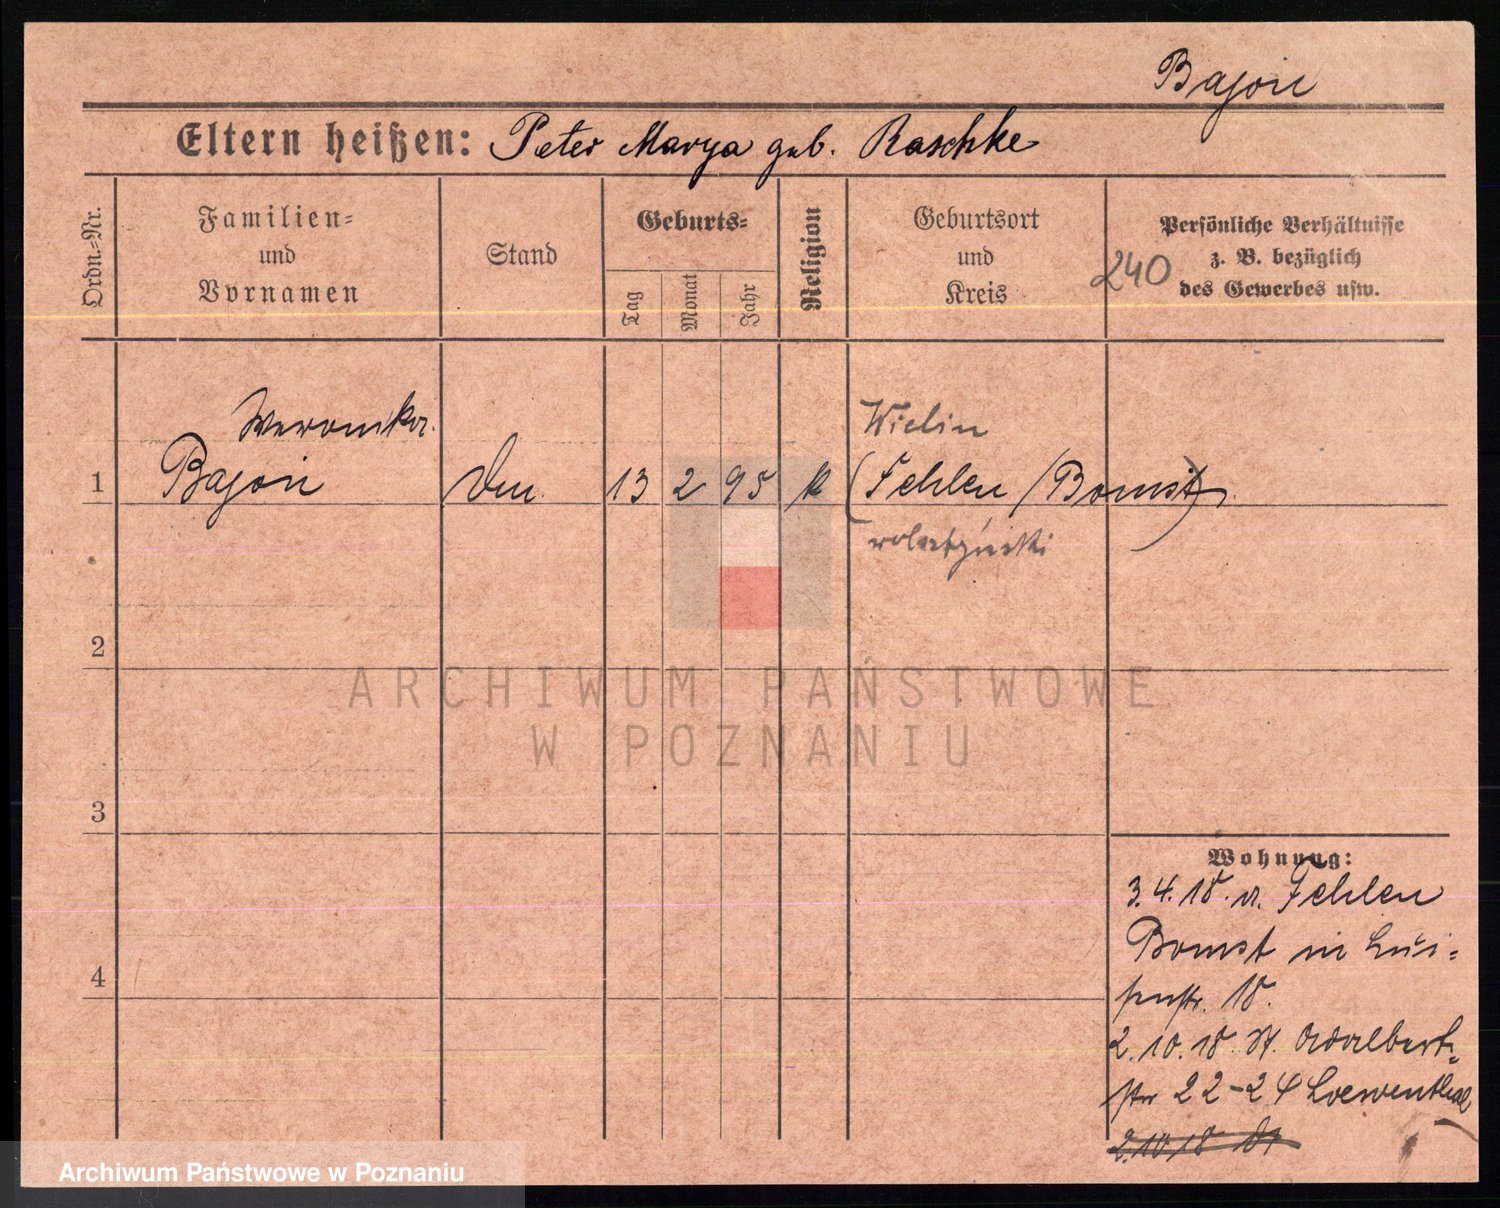 Bajon
Eltern heißen: Peter Marya geb. Raschke
Ordn.=Nr.
Familien=
und
Vornamen
Stand
Geburts=
Tag
Monat
Jahr
Religion
Geburtsort
und
Kreis
Persönliche Verhältnisse
z. B. bezüglich
des Gewerbes usw.
240
Weronika
Wielin
1 Bajon 13 2 95 k (Fehlen /Bomst)
wolsztyński
2
ARCHIWUM PAŃSTWOWE
W POZNANIU
3
Wohnung:
3.4.18. v. Fehlen
Bomst in Lui=
senstr. 18.
4
2.10.18 St. Adalbert=
str 22-24 Loewenthal
2.10.18 St
Archiwum Państwowe w Poznaniu